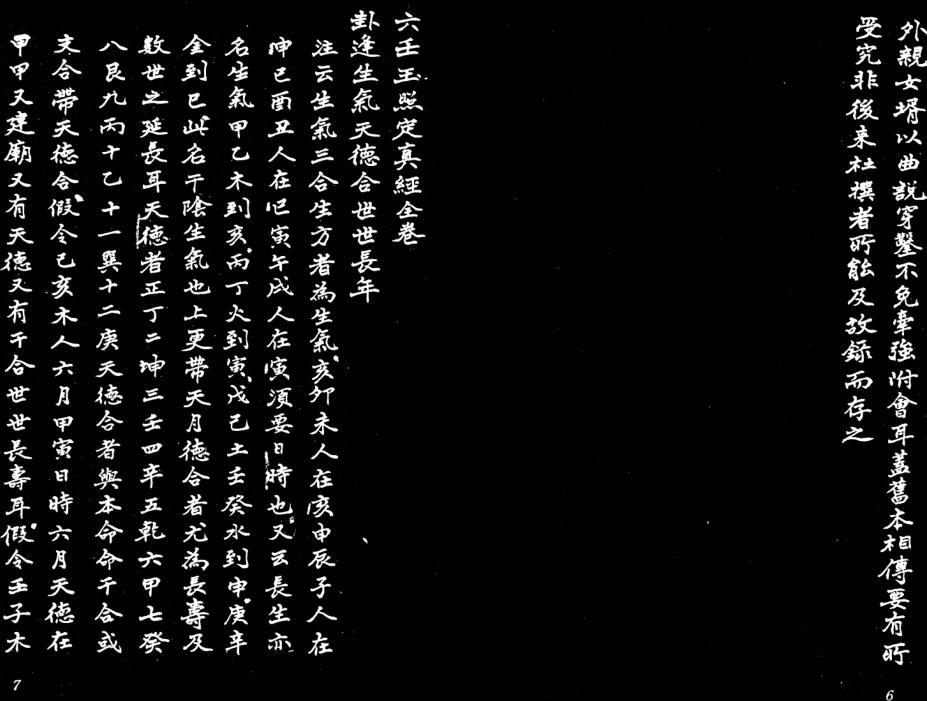 外親女壻以曲說穿鑿不免牽強附會耳蓋舊本相傳要有所
受究非後来杜撰者所能及故錄而存之
6
六壬玉照定真經全卷
卦逢生氣天德合世世長年
注云生氣三合生方者為生氣亥卯未人在亥申辰子人在
申巳酉丑人在巳寅午戌人在寅須要日時也又云長生亦
名生氣甲乙木到亥丙丁火到寅戊己土壬癸水到申庚辛
金到巳此名干陰生氣也上更帶天月德合者尤為長壽及
數世之延長耳天德者正丁二坤三壬四辛五乾六甲七癸
八艮九丙十乙十一巽十二庚天德合者與本命命干合或
支合帶天德合假令己亥木人六月甲寅日時六月天德在
甲甲又建廟又有天德又有干合世世長壽耳假令壬子木
7